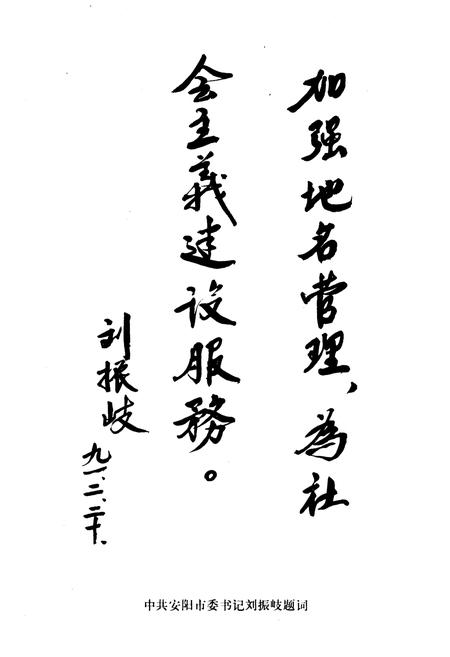 加强地名管理、为社
会主義建设服務。
刘振岐
九一、二、二十、
中共安阳市委书记刘振岐题词